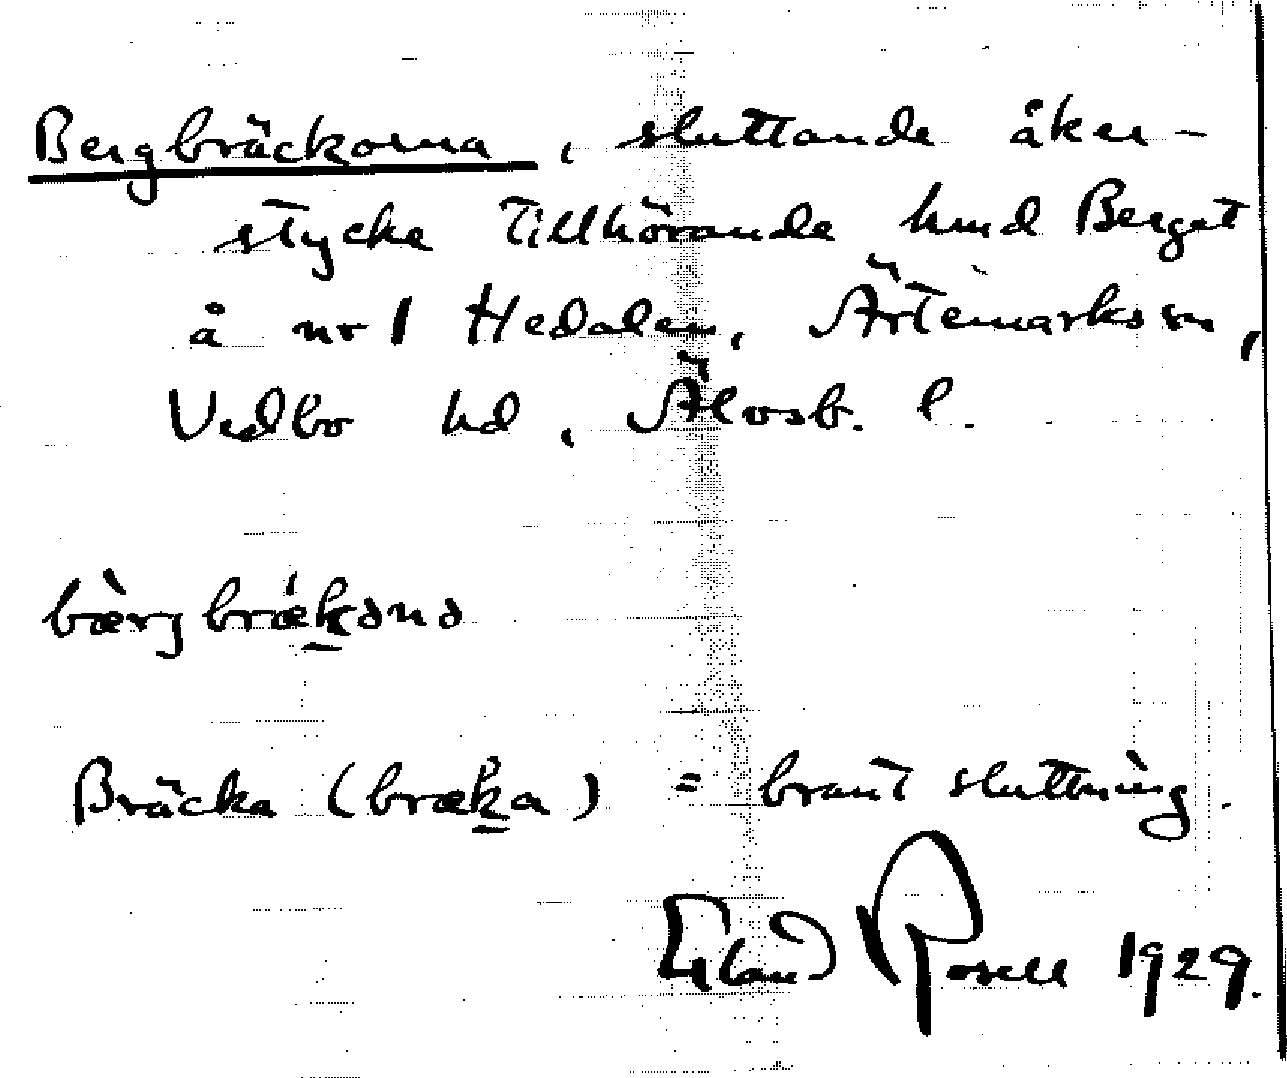 Bergbräckorna, sluttande åker-
stycke tillhörande hmd Berget
å nr 1 Hedalen, Ärtemarks sn,
Vedbo hd, Älvsb. l.
bæ̀rjbrǽk̠ənə
Bräcka (bræk̠a) = brant sluttning.
Rosell 1929.